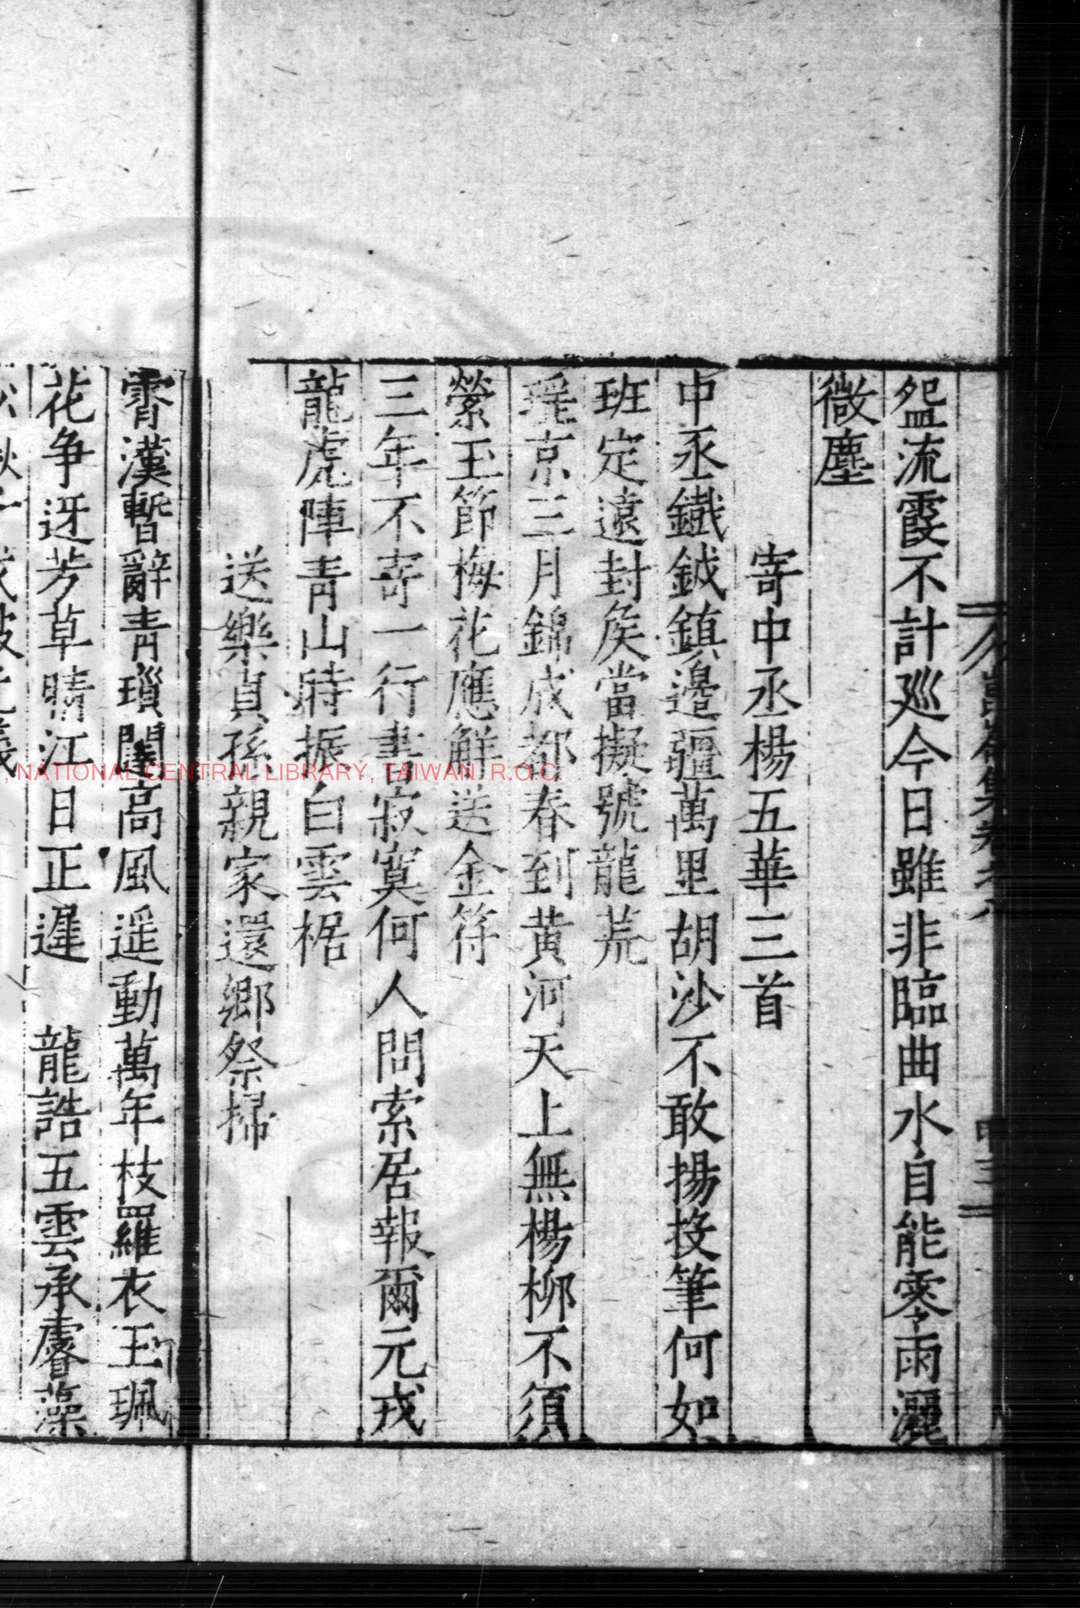 盌流霞不計廵今日雖非臨曲水自能零雨灑
微塵
寄中丞楊五華三首
中丞鐵鉞鎮邉疆萬里胡沙不敢揚投筆何如
班定遠封矦當擬號龍荒
瑤京三月錦成都春到黄河天上無楊柳不須
縈玉節梅花應鮮送金符
三年不寄一行書寂寞何人問索居報爾元戎
龍虎陣青山時振白雲裾
送樂貞孫親家還鄉祭掃
霄漢暫辭青瑣闥高風遥動萬年枝羅衣玉珮
花争迓芳草晴江日正遲 龍誥五雲承睿藻
NATIONAL CENTRAL LIBRARY, TAIWAN R.O.C.